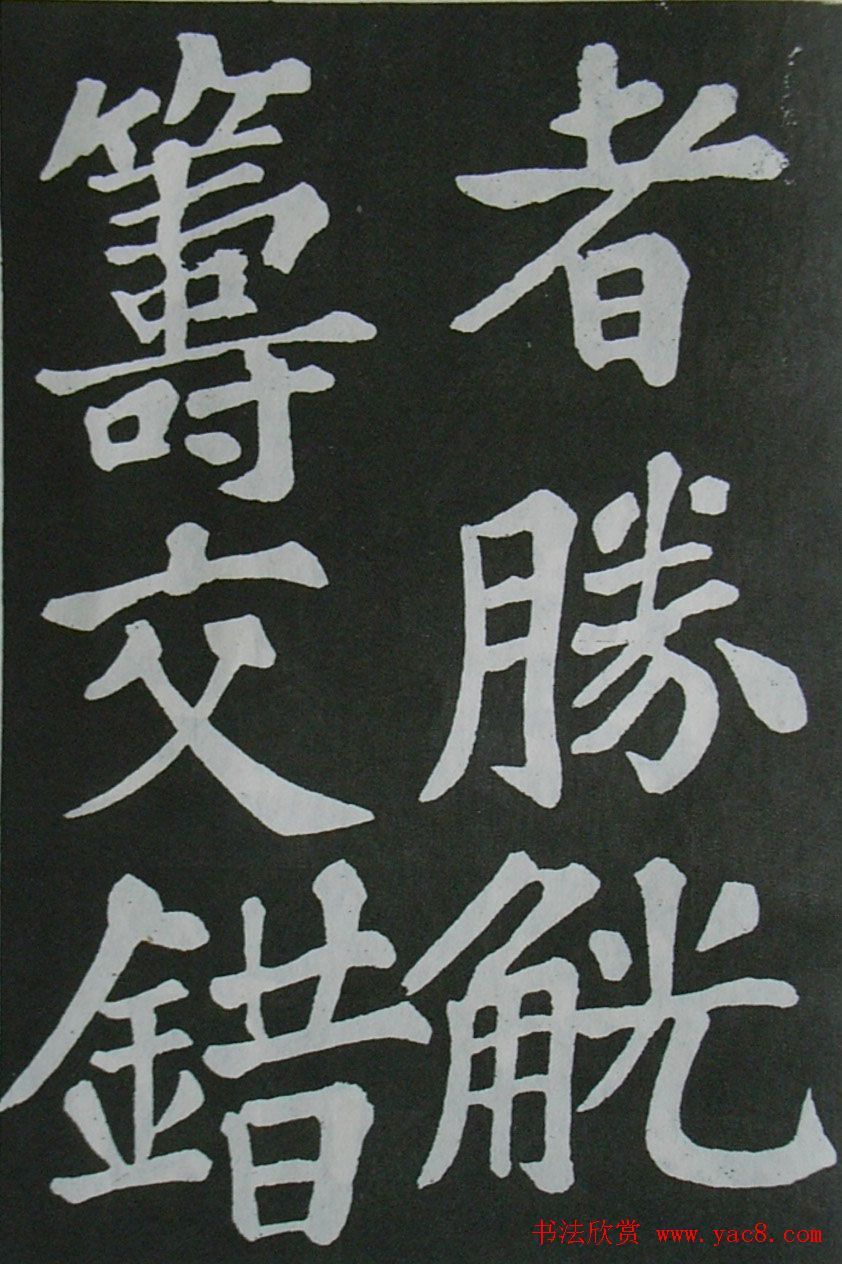 者勝觥
籌交錯
书法欣赏 www.yac8.com